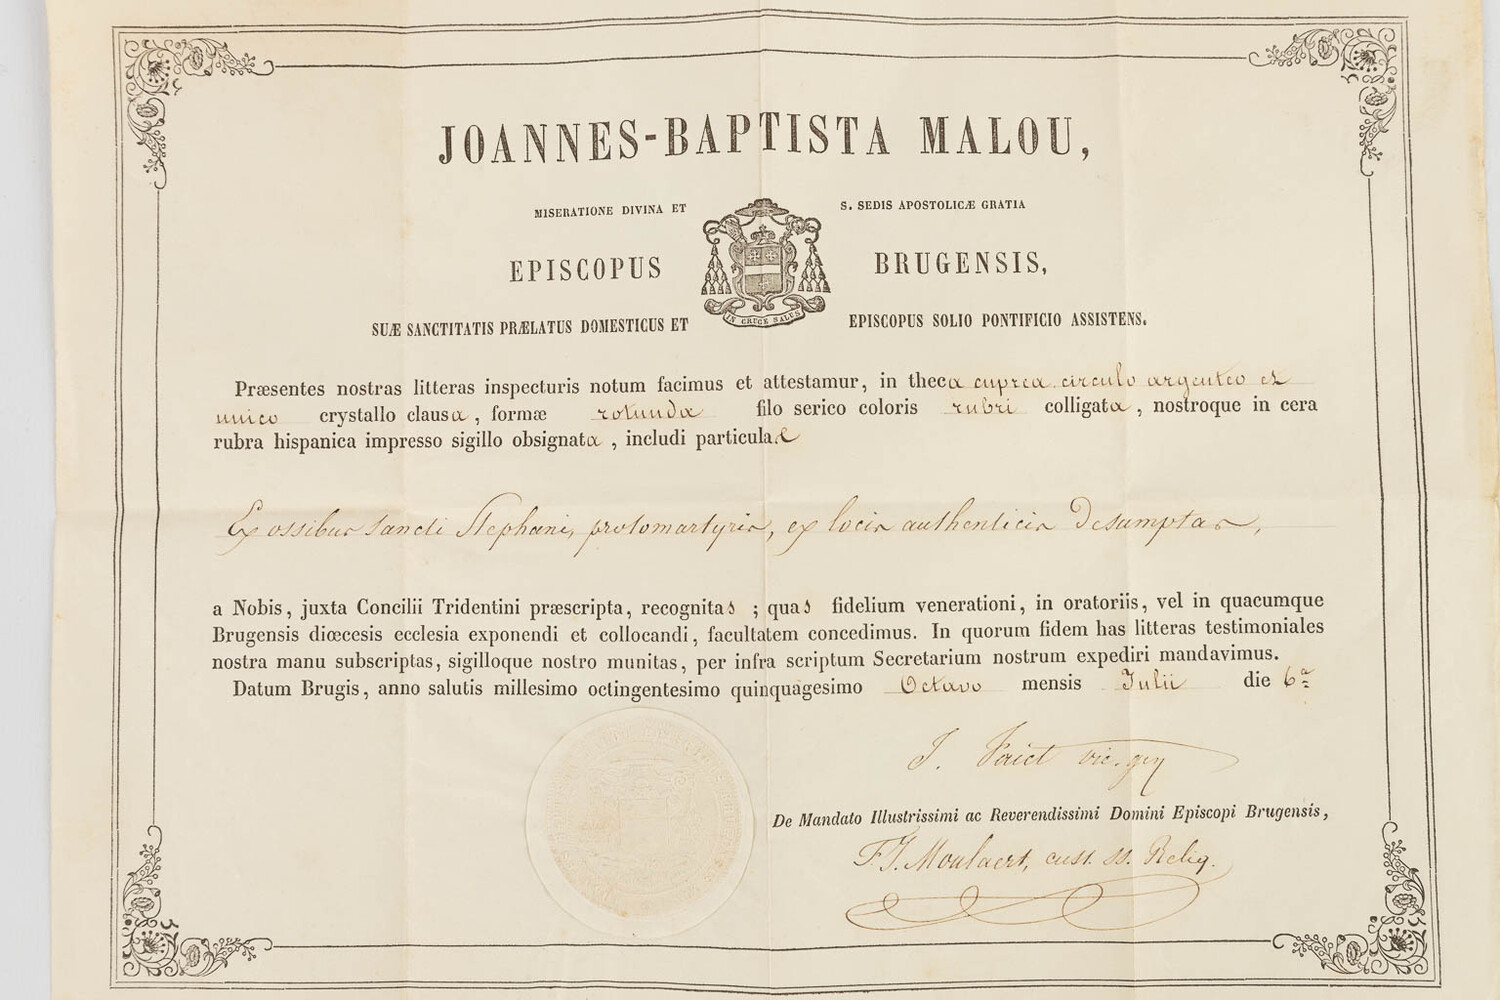 JOANNES-BAPTISTA MALOU,
MISERATIONE DIVINA ET S. SEDIS APOSTOLICÆ GRATIA
EPISCOPUS BRUGENSIS,
IN CRUCE SALUS
SUÆ SANCTITATIS PRÆLATUS DOMESTICUS ET EPISCOPUS SOLIO PONTIFICIO ASSISTENS.
Præsentes nostras litteras inspecturis notum facimus et attestamur, in theca cuprea circulo argenteo et
unico crystallo clausa, formæ rotunda filo serico coloris rubri colligata, nostroque in cera
rubra hispanica impresso sigillo obsignata, includi particulas
Ex ossibus sancti Stephani, protomartyris, ex locis authenticis desumptas,
a Nobis, juxta Concilii Tridentini præscripta, recognitas; quas fidelium venerationi, in oratoriis, vel in quacumque
Brugensis diœcesis ecclesia exponendi et collocandi, facultatem concedimus. In quorum fidem has litteras testimoniales
nostra manu subscriptas, sigilloque nostro munitas, per infra scriptum Secretarium nostrum expediri mandavimus.
Datum Brugis, anno salutis millesimo octingentesimo quinquagesimo Octavo mensis Julii die 6ª
J. Faict vic. gen
De Mandato Illustrissimi ac Reverendissimi Domini Episcopi Brugensis,
F. J. Moulaert, cust. ss. Reliq.